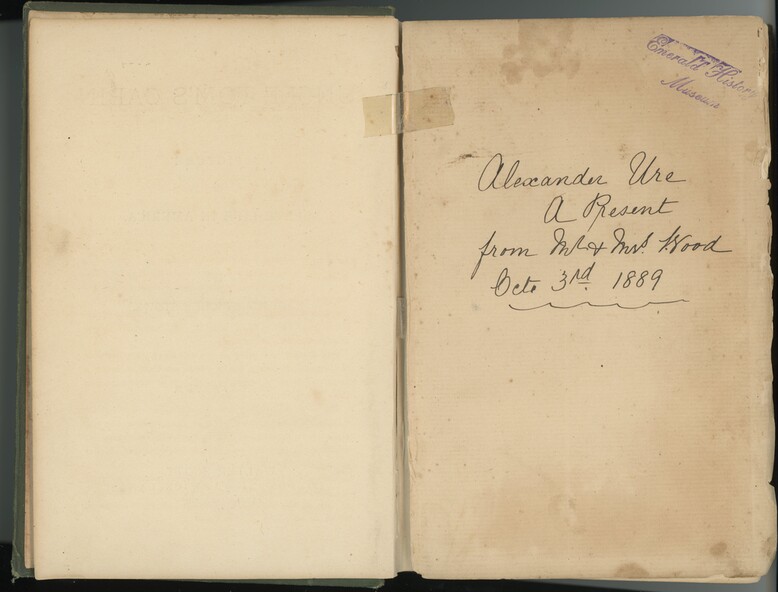 Emerald History
Museum
Alexander Ure
A Present
from Mr & Mrs. Wood
Octo 3rd 1889